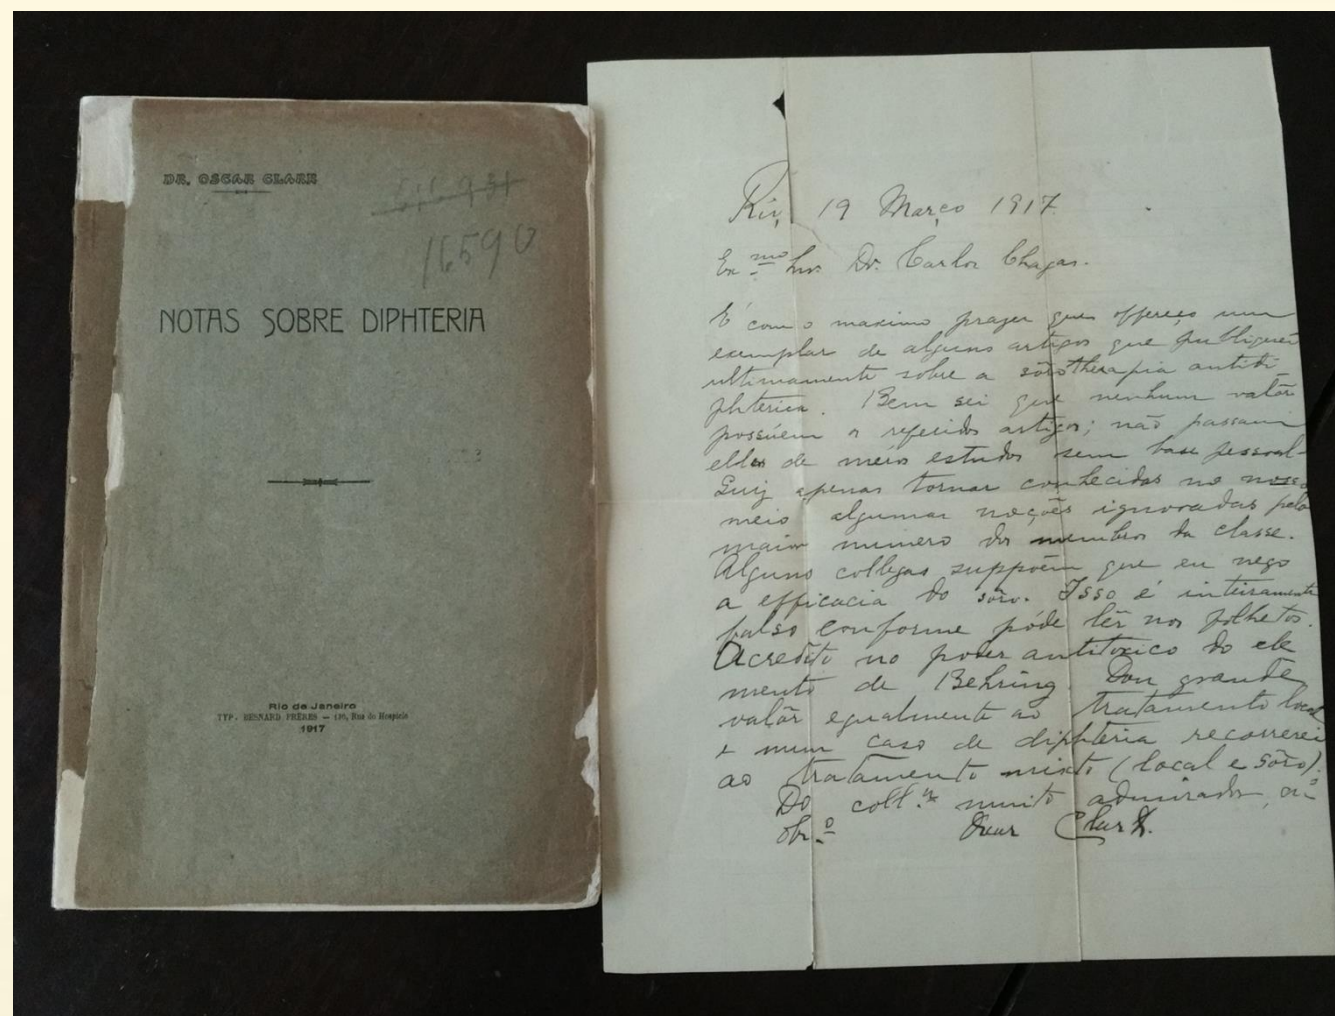 DR. OSCAR CLARK
16590
NOTAS SOBRE DIPHTERIA
Rio de Janeiro
TYP. BESNARD FRÈRES — 130, Rua do Hospicio
1917
Rio, 19 Março 1917
Ex.mo Snr. Dr. Carlos Chagas.
É com o maximo prazer que offereço um
exemplar de alguns artigos que publiquei
ultimamente sobre a sôrotherapia antidi
phterica. Bem sei que nenhum valôr
possúem os referidos artigos; não passam
elles de méros estudos sem base pessoal.
Quiz apenas tornar conhecidas no nosso
meio algumas noções ignoradas pelo
maior numero dos membros da classe.
Alguns collegas suppõem que eu nego
a efficacia do sôro. Isso é inteiramente
falso conforme póde lêr nos folhetos.
Acredito no poder antitoxico do ele
mento de Behring. Dou grande
valôr egualmente ao tratamento local
e num caso de diphteria recorrerei
ao tratamento mixto (local e sôro).
Do coll.a muito admirador,
obr.o Oscar Clark.